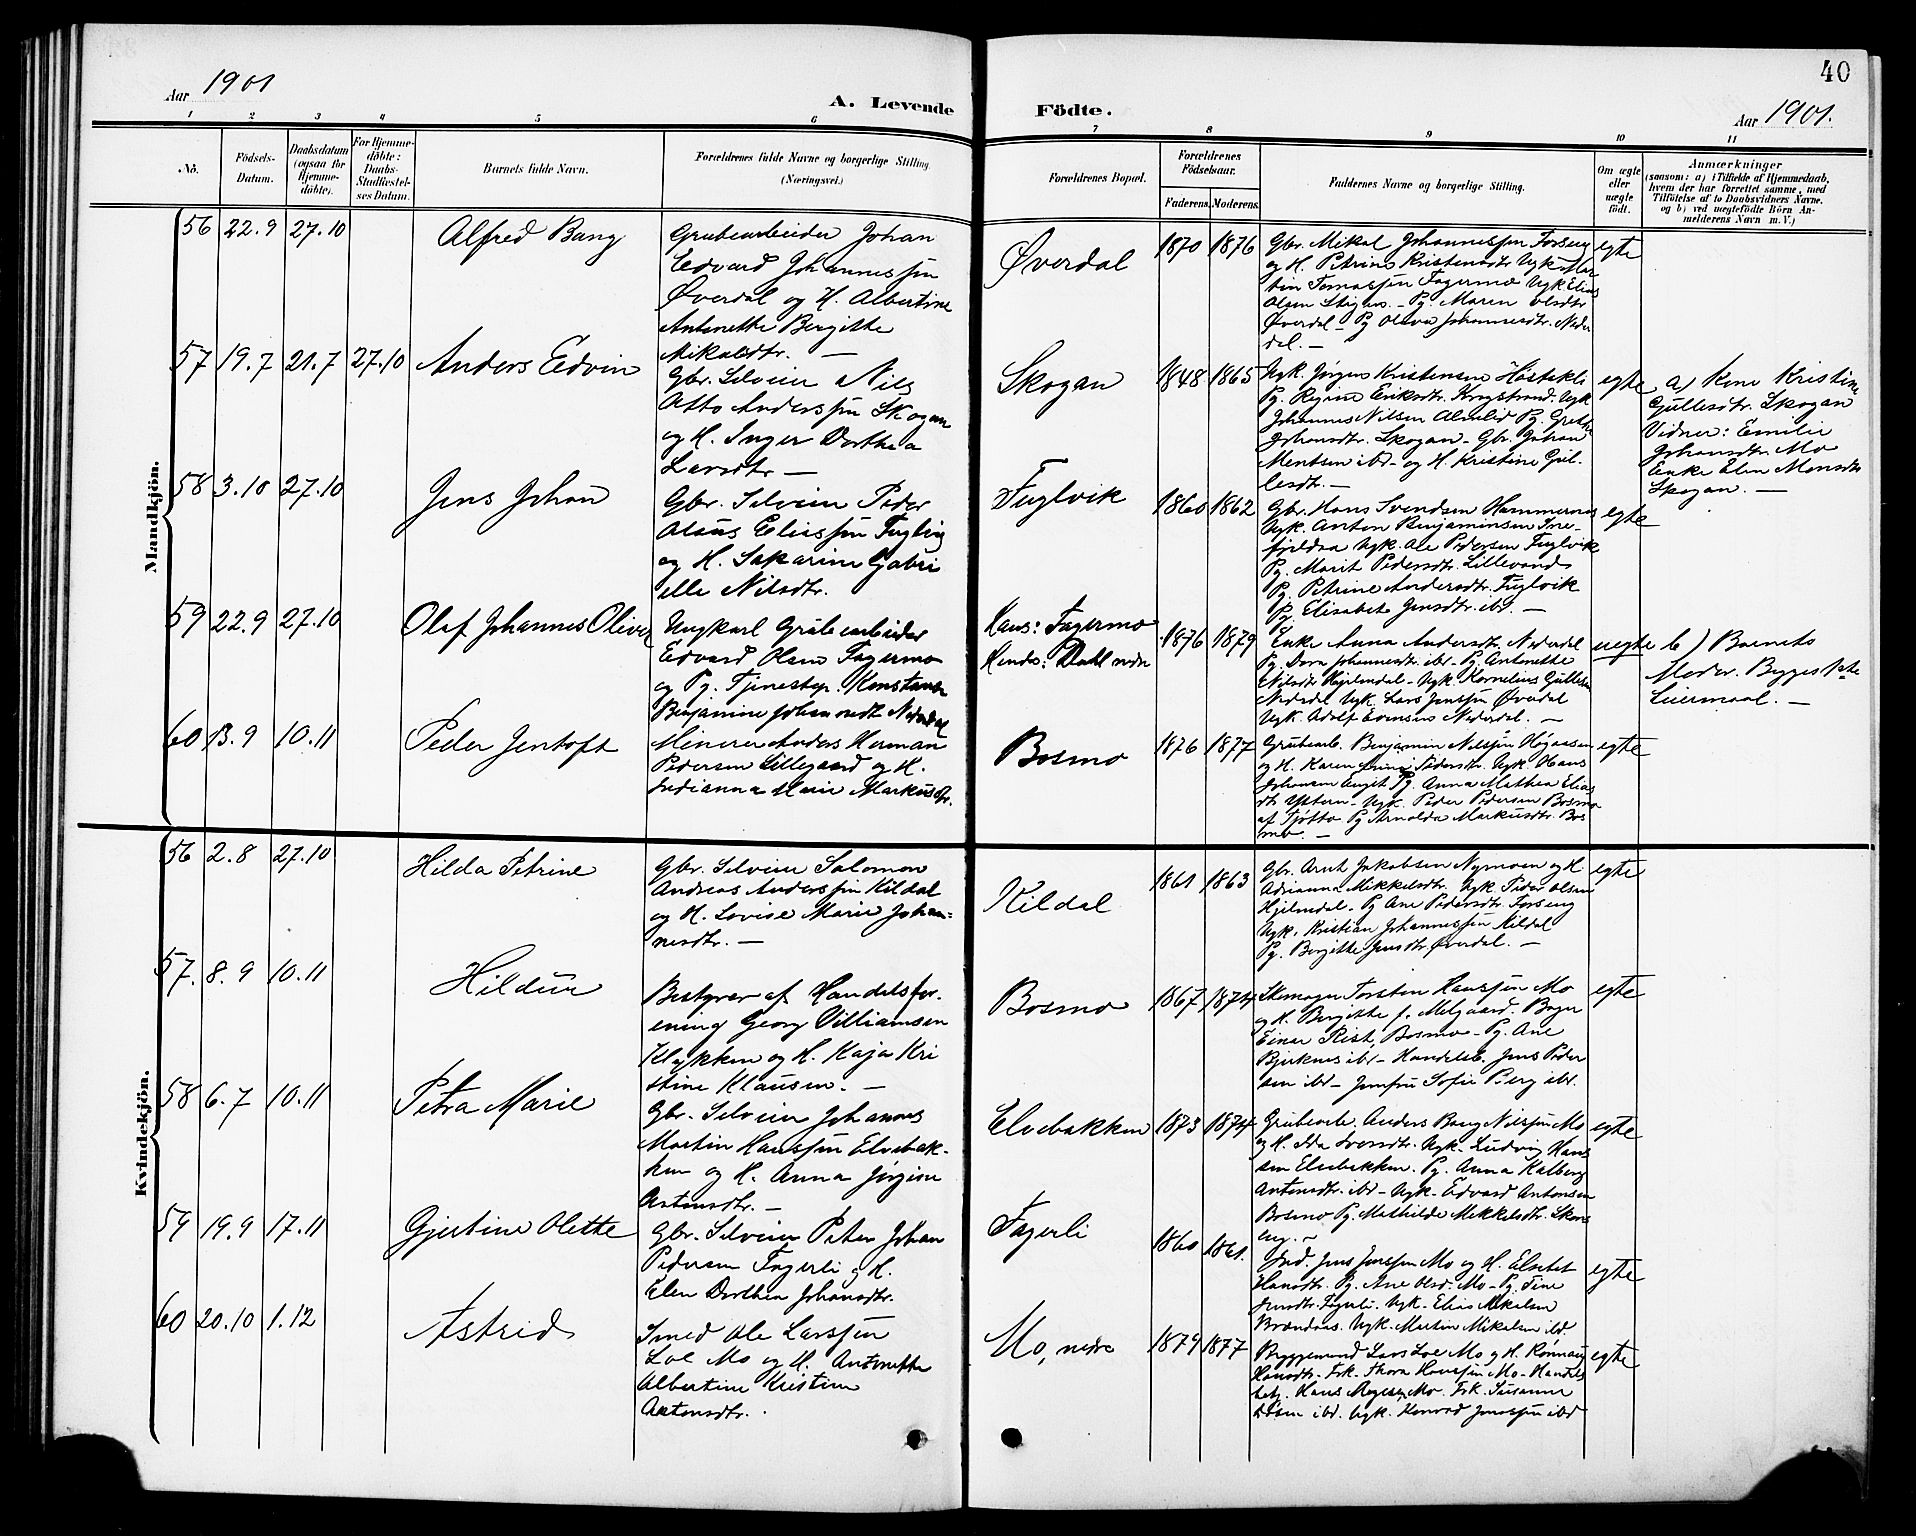 Aar 1901
A. Levende
Födte.
40
Aar 1901.
1 2 3 4 5 6 7 8 9 10 11
No.
Födsels-
Datum.
Daabsdatum
(ogsaa for
Hjemme-
döbte).
For Hjemme-
döbte:
Daabs-
Stadfæstel-
ses Datum.
Barnets fulde Navn.
Forældrenes fulde Navne og borgerlige Stilling.
(Næringsvei.)
Forældrenes Bopæl.
Forældrenes
Födselsaar.
Faderens. Moderens.
Faddernes Navne og borgerlige Stilling.
Om ægte
eller
uægte
födt.
Anmærkninger
(saasom: a) i Tilfælde af Hjemmedaab,
hvem der har forrettet samme, med
Tilföielse af to Daabsvidners Navne.
og b) ved uægtefödte Börn An-
melderens Navn m. V.)
Mandkjön.
56 22.9 27.10
Alfred Bang
Grubearbeider Johan
Edvard Johannessen
Øverdal og H. Albertine
Antonette Bergitte
Mikalsdtr. —
Øverdal
1870 1876
Gbr. Mikal Johannessen Forseng
og H. Petrine Kristensdtr. Ugk Mar
tin Tomassen Fagermo Ugk Elias
Olsen Stigen. — Pg. Maren Olsdtr
Øverdal — Pg Olava Johannesdtr. Neder
dal. —
egte
57 19.7 21.7 27.10
Anders Edvin
Gbr. Selveier Nils
Otto Anderssen Skogan
og H. Inger Dorthea
Larsdtr. —
Skogan
1848 1865
Ugk. Jørgen Kristensen Høstakli
Pg. Regine Eriksdtr. Krogstrand. Ugk
Johannes Nilsen Almlid Pg. Grethe
Johansdtr. Skogan — Gbr. Johan
Mentsen ibd — og H. Kristine Gul-
lesdtr. —
egte
a) Kone Kristine
Gullesdtr. Skogan
Vidner: Emilie
Johansdtr. Mo
Enke Elen Monsdtr
Skogan. —
58 3.10 27.10
Jens Johan
Gbr. Selveier Peder
Olaus Eliassen Fuglvig
og H. Sakarine Gabri
elle Nilsdtr.
Fuglvik
1860 1862
Gbr. Hans Svendsen Hammernes
Ugk. Anton Benjaminsen Sne-
fjeldaa Ugk. Ole Pedersen Fuglvik
Pg. Marit Pedersdtr. Lillevand
Pg. Petrine Andersdtr. Fuglvik
Pg. Elisabet Jensdtr. ibd. —
egte
59 22.9 27.10
Olaf Johannes Oliver
Ungkarl Grubearbeider
Edvard Olsen Fagermo
og Pg. Tjenestep. Konstanse
Benjamine Johannesdtr Nederdal
Hans: Fagermo
Hendes: Dahl nedre
1876 1879
Enke Anna Andersdtr. Nederdal
Pg. Dora Johannesdtr. ibd — Pg. Antonette
Nilsdtr Hjelmdal — Ugk. Kornelius Gullesen
Nederdal Ugk. Lars Jenssen Øverdal
Ugk. Adolf Evensen Nederdal. —
uegte
b) Barnets
Moder. Begges 1ste
Leiermaal. —
60 13.9 10.11
Peder Jentoft
Minerer Anders Herman
Pedersen Lillegaard og H.
Indianna Marie Markusdtr.
Bosmo
1876 1877
Grubearb. Benjamin Nilssen Høgaasen
og H. Karen Pedersdtr. Ugk. Hans
Johansen Pg. Anna Mathea Elias
dtr. Yttern — Ugk. Peder Pedersen Bosmo
af Tjøtto Pg Arnolda Markusdtr. Bos
mo. —
egte
Kvindekjön.
56 2.8 27.10
Hilda Petrine
Gbr. Selveier Salomon
Andreas Anderssen Kildal
og H. Lovise Marie Johan-
nesdtr. —
Kildal
1861 1863
Gbr. Arnt Jakobsen Nymoen og H
Adrianna Mikkelsdtr. Ugk. Peder Olsen
Hjelmdal — Pg Ane Pedersdtr. Forseng
Ugk. Kristian Johannessen Kildal
Pg. Bergitte Jensdtr. Øverdal. —
egte
57. 8.9 10.11
Hildur
Bestyrer af Handelsfor-
ening Georg Villiamsen
Klykken og H. Kaja Kri
stine Klausen. —
Bosmo
1867 1874
Skomager Torsten Hanssen Mo
og H. Bergitte f. Melgaard. Bager
Einar Rist, Bosmo — Pg. Ane
Bjerknes ibd — Handelsb. Jens Peder
sen ibd — Jomfru Sofie Berg ibd.
egte
58 6.7 10.11
Petra Marie
Gbr. Selveier Johannes
Martin Hanssen Elvebak-
ken og H. Anna Jørgine
Antonsdtr. —
Elvebakken
1873 1874
Grubearb. Anders Bang Nilssen Mo
og H. Ida Iversdtr. Ugk. Ludvig Hans
sen Elvebakken. Pg. Anna Kalberg
Antonsdtr. ibd — Ugk. Edvard Antonsen
Bosmo Pg. Mathilde Mekkelsdtr. Skons
eng. —
egte
59 19.9 17.11
Gjertine Olette
Gbr. Selveier Peter Johan
Pedersen Fagerli og H.
Elen Dorthea Johansdtr.
Fagerli
1860 1861.
Ind. Jens Jenssen Mo og H. Elsebet
Hansdtr. Pg. Ane Olsd. Mo — Pg. Tine
Jensdtr. Fagerli. Ugk. Elias Mikalsen
Brændaas. Ugk. Martin Mikalsen ibd.
egte
60 20.10 1.12
Astrid
Smed Ole Larssen
Loe Mo og H. Antonette
Albertine Kristine
Antonsdtr.
Mo, nedre
1879 1877
Byggemand Lars Loe Mo og H. Rønnaug
Hansdtr — Frk. Thora Hanssen Mo — Handels
betj. Hans Mo. Frk. Susanne
Olsen ibd. Ugk. Konrad Jonassen ibd
egte